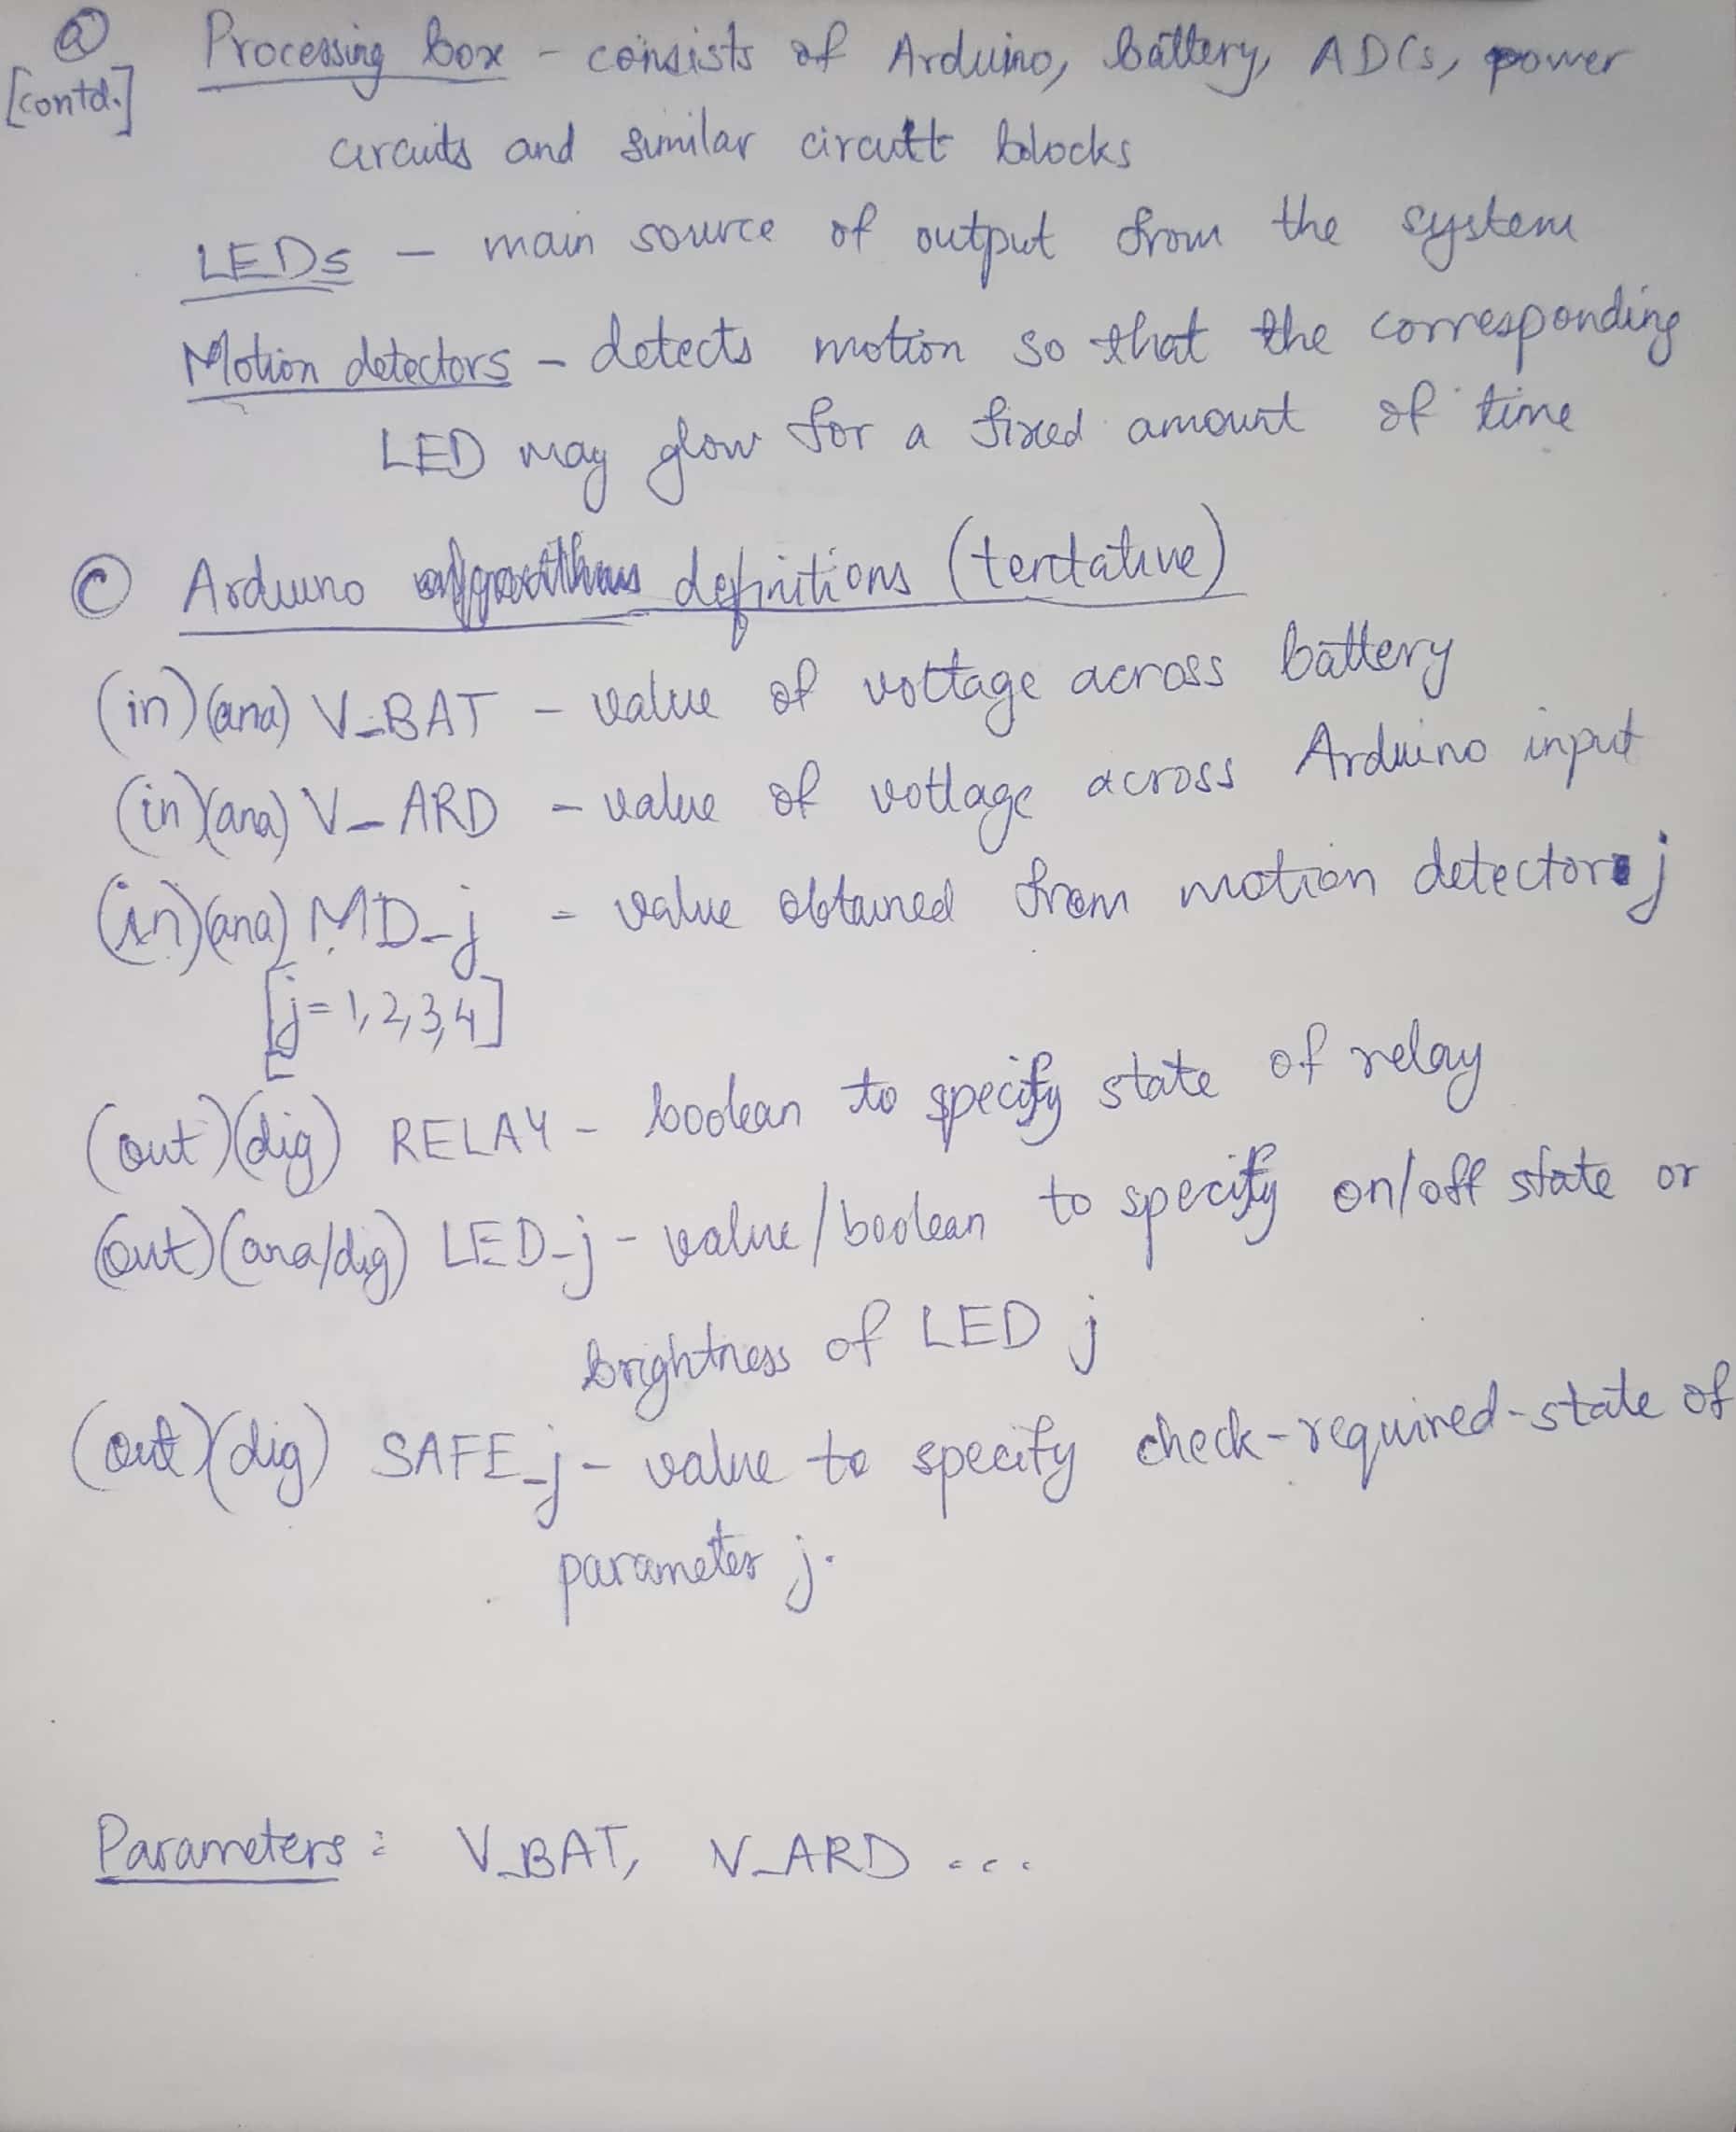 ⓐ Processing box - consists of Arduino, battery, ADCs, power
[contd.]
circuits and similar circuit blocks
LEDs - main source of output from the system
Motion detectors - detects motion so that the corresponding
LED may glow for a fixed amount of time
ⓒ Arduino definitions (tentative)
(in)(ana) V_BAT - value of voltage across battery
(in)(ana) V_ARD - value of votlage across Arduino input
(in)(ana) MD_j - value obtained from motion detector j
[j=1,2,3,4]
(out)(dig) RELAY - boolean to specify state of relay
(out)(ana/dig) LED_j - value/boolean to specify on/off state or
brightness of LED j
(out)(dig) SAFE_j - value to specify check-required-state of
parameter j.
Parameters: V_BAT, V_ARD ...